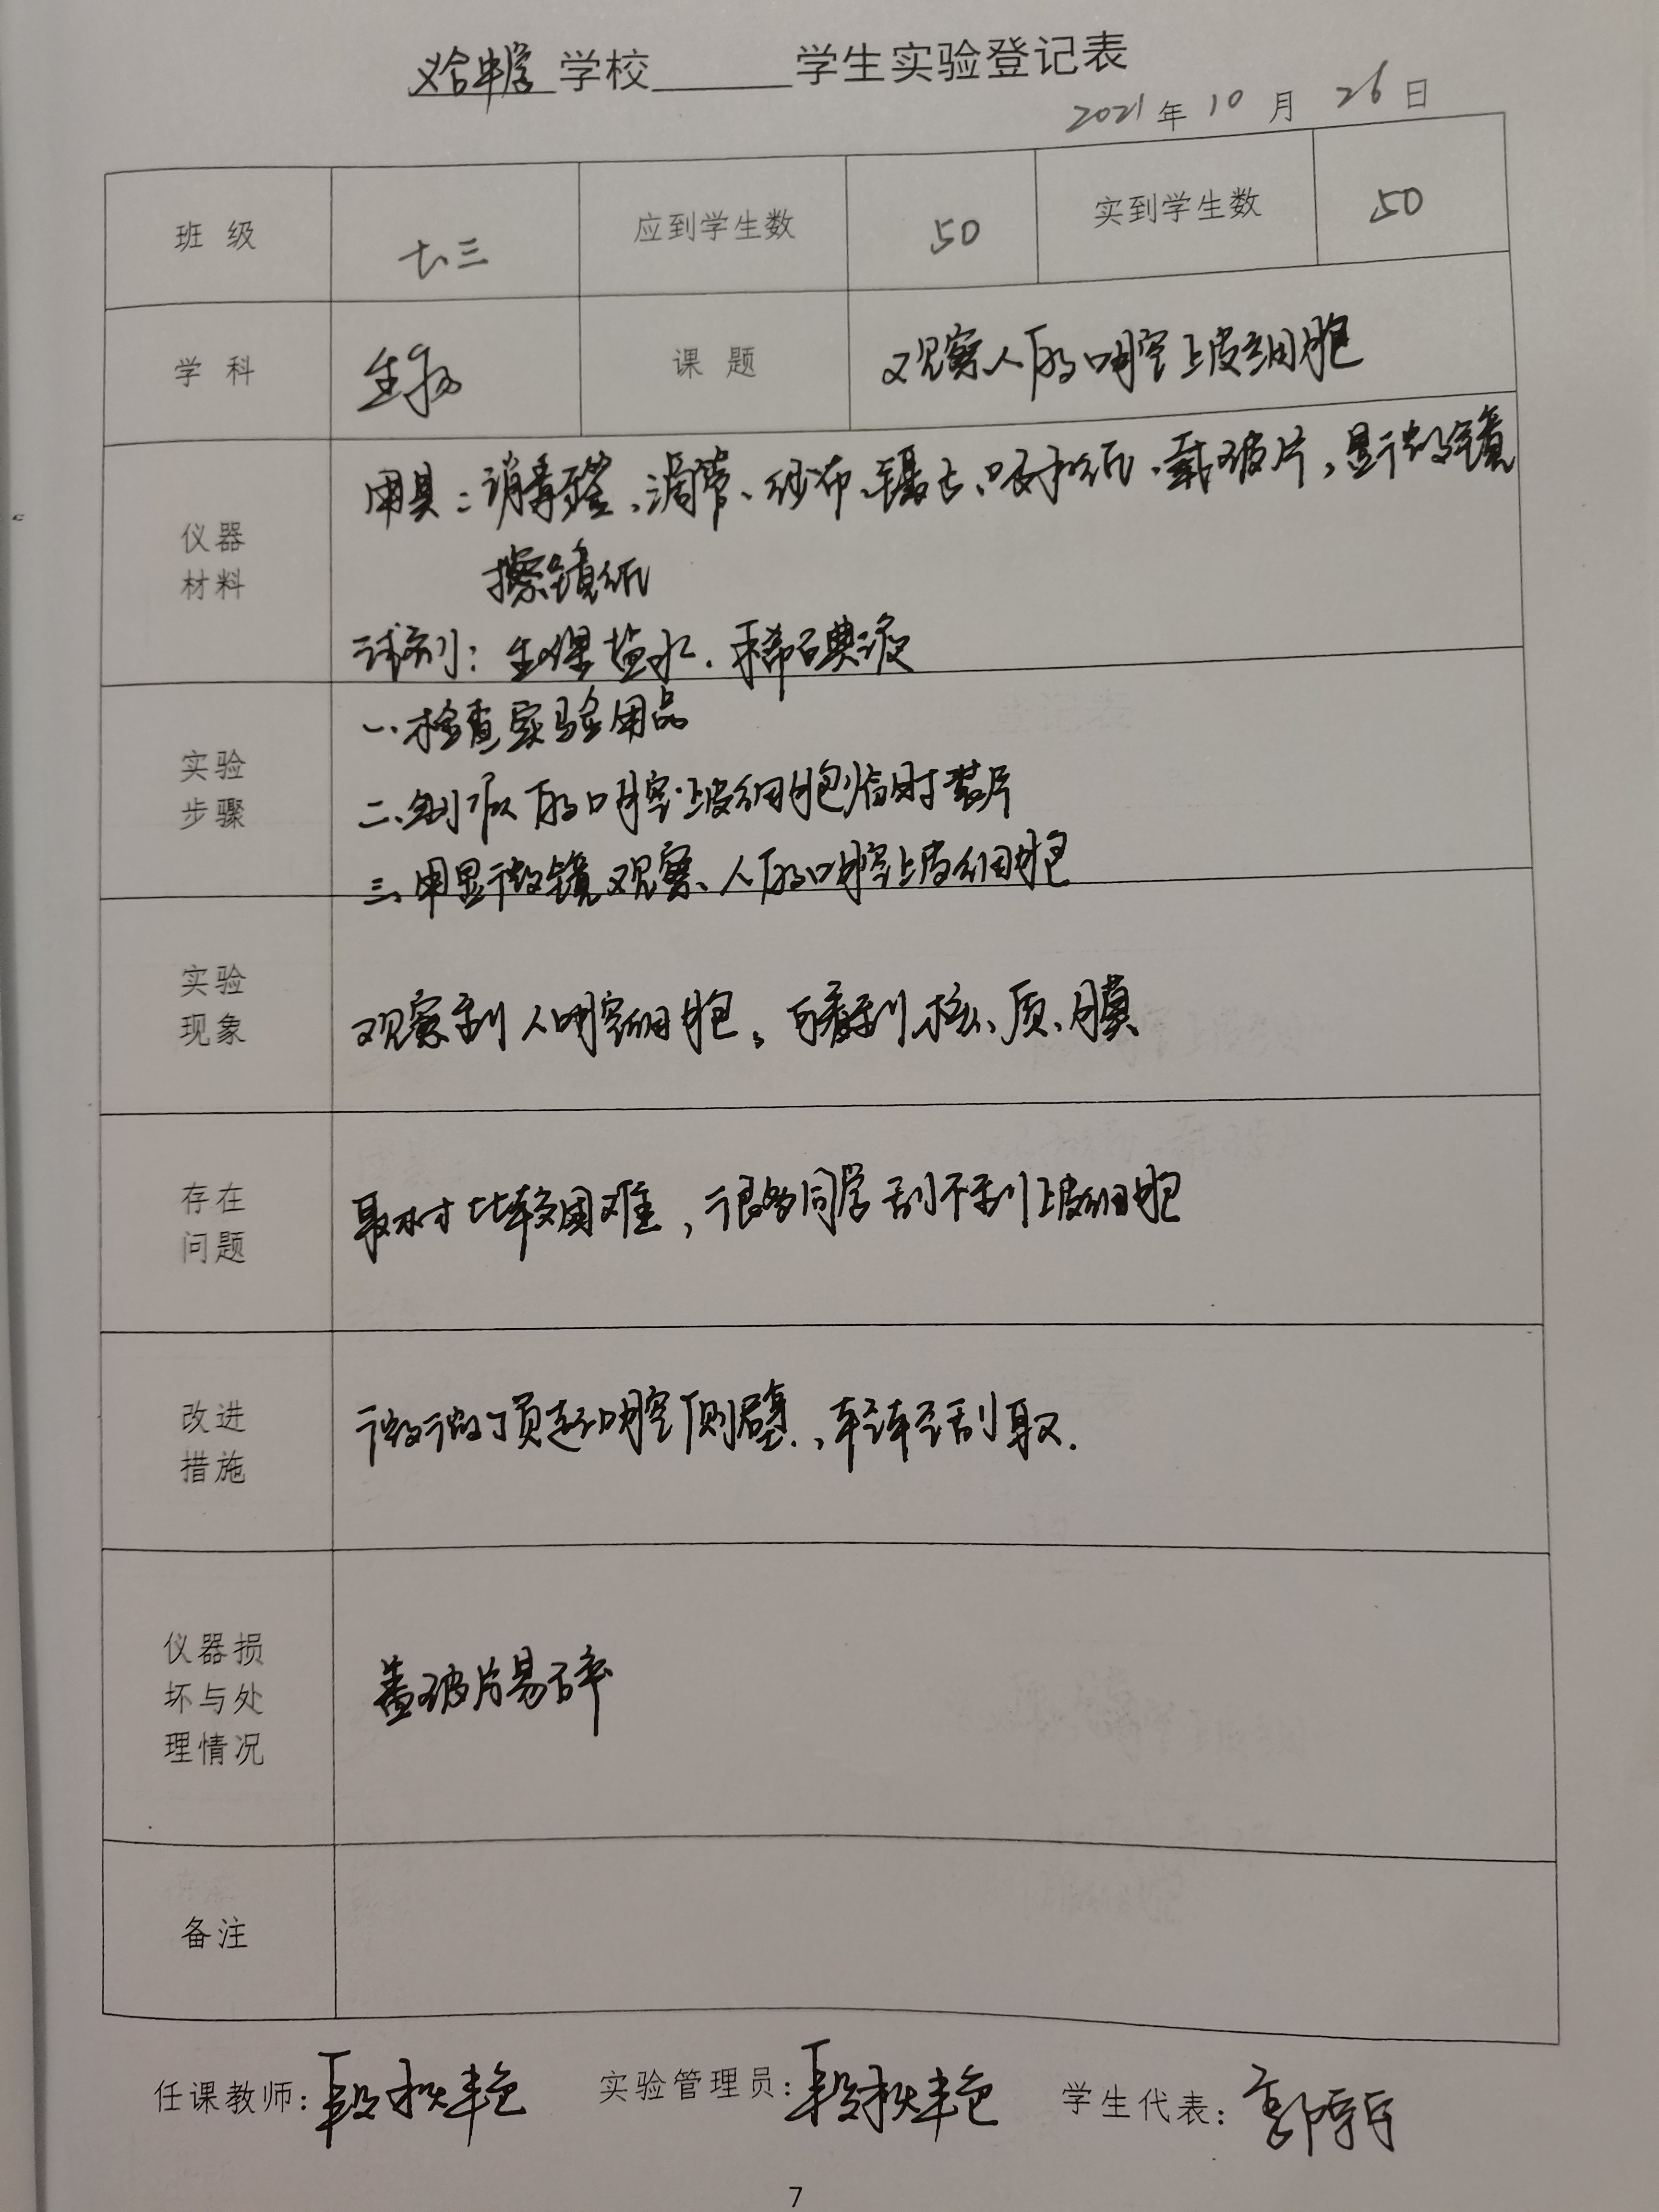 义合中学 学校 学生实验登记表
2021 年 10 月 26 日
班 级 七.三 应到学生数 50 实到学生数 50
学 科 生物 课 题 观察人的口腔上皮细胞
仪器
材料
用具：消毒牙签、滴管、纱布、镊子、吸水纸、载玻片，显微镜
擦镜纸
试剂：生理盐水．稀碘液
实验
步骤
一、检查实验用品
二、制取人的口腔上皮细胞临时装片
三、用显微镜观察、人的口腔上皮细胞
实验
现象
观察到人口腔细胞。可看到核、质、膜
存在
问题
取材比较困难，很多同学刮不到上皮细胞
改进
措施
微微顶起口腔侧壁．、轻轻刮取．
仪器损
坏与处
理情况
盖玻片易碎
备注
任课教师：段秋艳 实验管理员：段秋艳 学生代表：郭
7